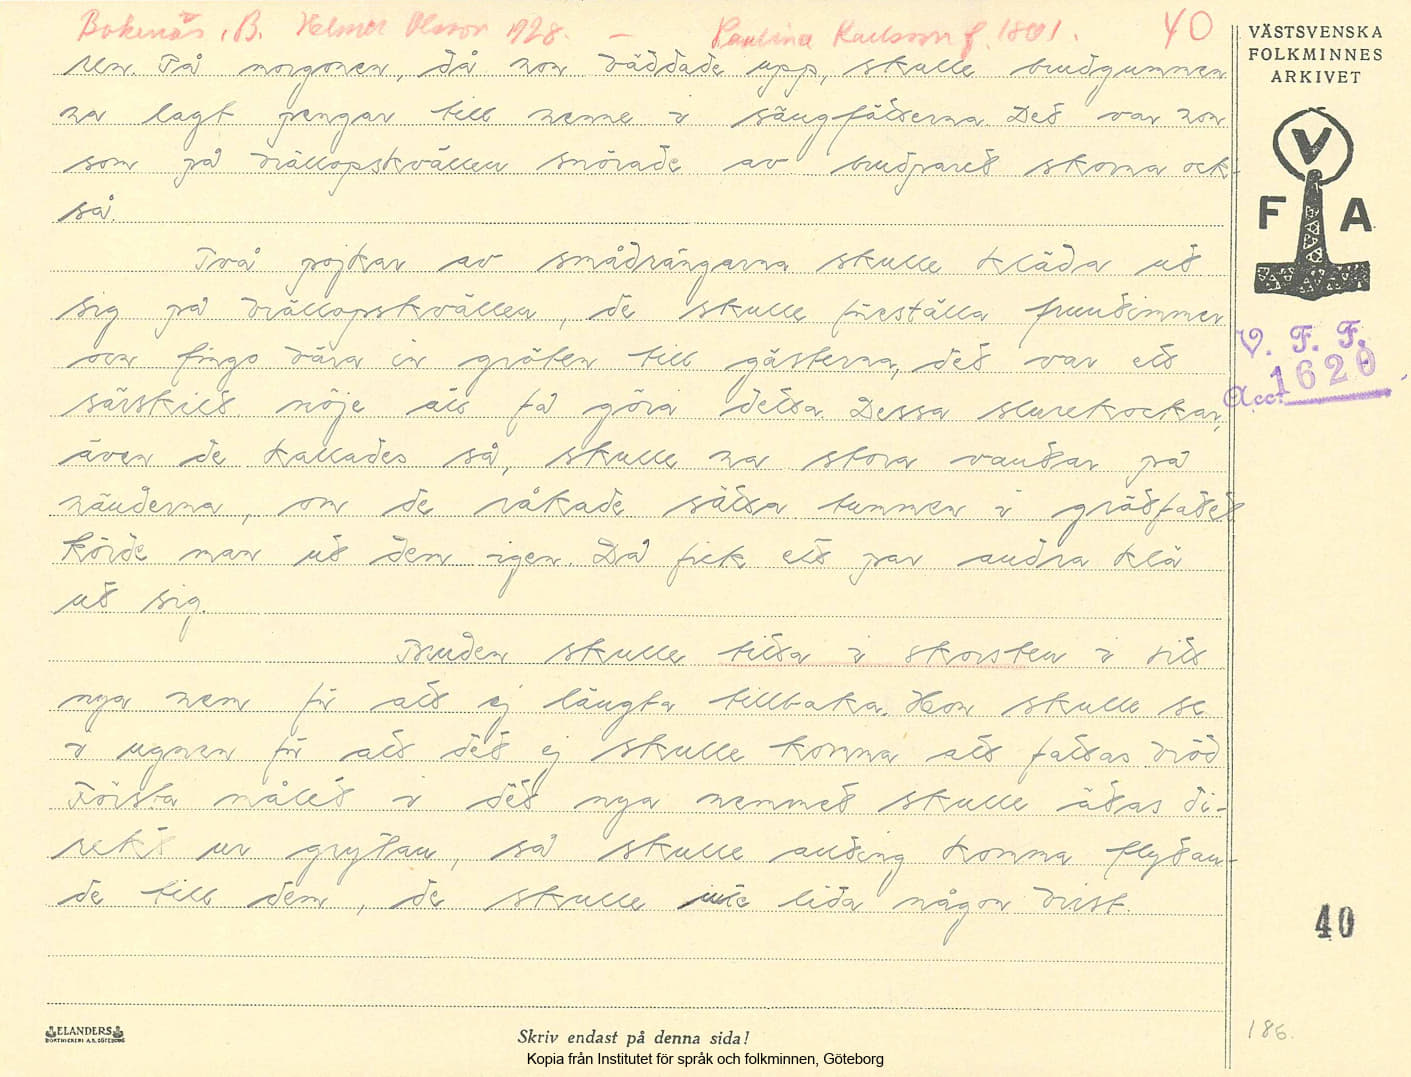 Bokenäs, B. Helmer Olsson 1928. — Paulina Karlsson f. 1841. 40
ren. På morgonen, då hon bäddade upp, skulle brudgummen
ha lagt pengar till henne i sängfällarna. Det var hon
som på bröllopskvällen snörade av brudparet skorna ock-
så.
Två pojkar av smådrängarna skulle kläda ut
sig på bröllopskvällen, de skulle föreställa fruntimmer
och fingo bära in gröten till gästerna, det var ett
särskilt nöje att få göra detta. Dessa slurekockar,
även de kallades så, skulle ha stora vantar på
händerna, om de råkade sätta tummen i grötfatet
körde man ut dem igen. Då fick ett par andra klä
ut sig.
Bruden skulle titta i skorsten i sitt
nya hem för att ej längta tillbaka. Hon skulle se
i ugnen för att det ej skulle komma att fattas bröd
Första målet i det nya hemmet skulle ätas di-
rekt ur grytan, så skulle allting komma flytan-
de till dem, de skulle inte lida någon brist.
VÄSTSVENSKA
FOLKMINNES
ARKIVET
V
F A
V. F. F.
Acc. 1620
40
186.
ELANDERS
BOKTRYCKERI A.B. GÖTEBORG
Skriv endast på denna sida!
Kopia från Institutet för språk och folkminnen, Göteborg